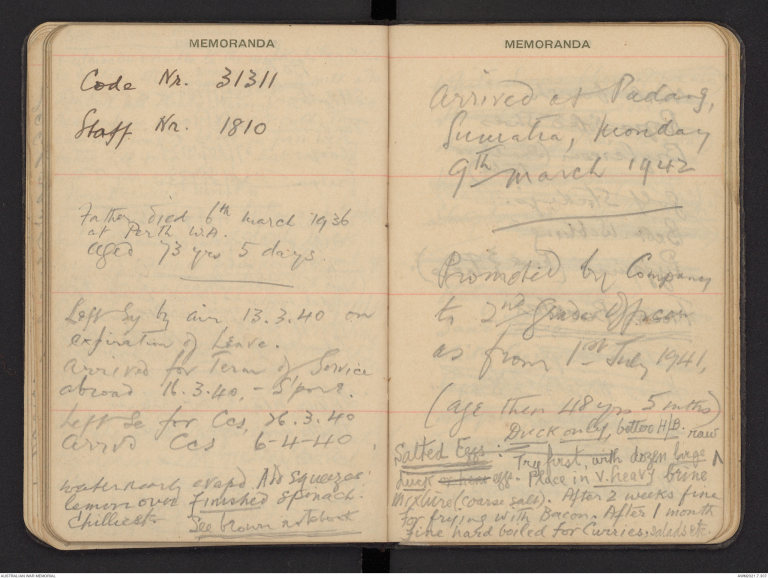 MEMORANDA
Code Nr. 31311
Staff Nr. 1810
Father died 6th march 1936
at Perth W.A.
aged 73 yrs 5 days.
Left Sy by air 13.3.40 on
expiration of Leave.
arrived for Term of Service
abroad 16.3.40, - S'pore.
Left Se for Ccs, 26.3.40
arrvd Ccs 6-4-40.
water nearly evapd. Add squeeze
lemon over finished spinach.
Chillies
See brown notebook
MEMORANDA
arrived at Padang,
Sumatra, Monday
9th march 1942
Promoted by Company
to 2nd Grade Officer
as from 1st July 1941,
(age then 48 yrs 5 mths)
Duck only, better H/B. raw
Salted Eggs: Try first, with dozen large
duck or hen eggs. Place in v. heavy brine
mixture (coarse salt). After 2 weeks fine
for frying with Bacon. After 1 month
fine hard boiled for Curries, salads etc.
AUSTRALIAN WAR MEMORIAL